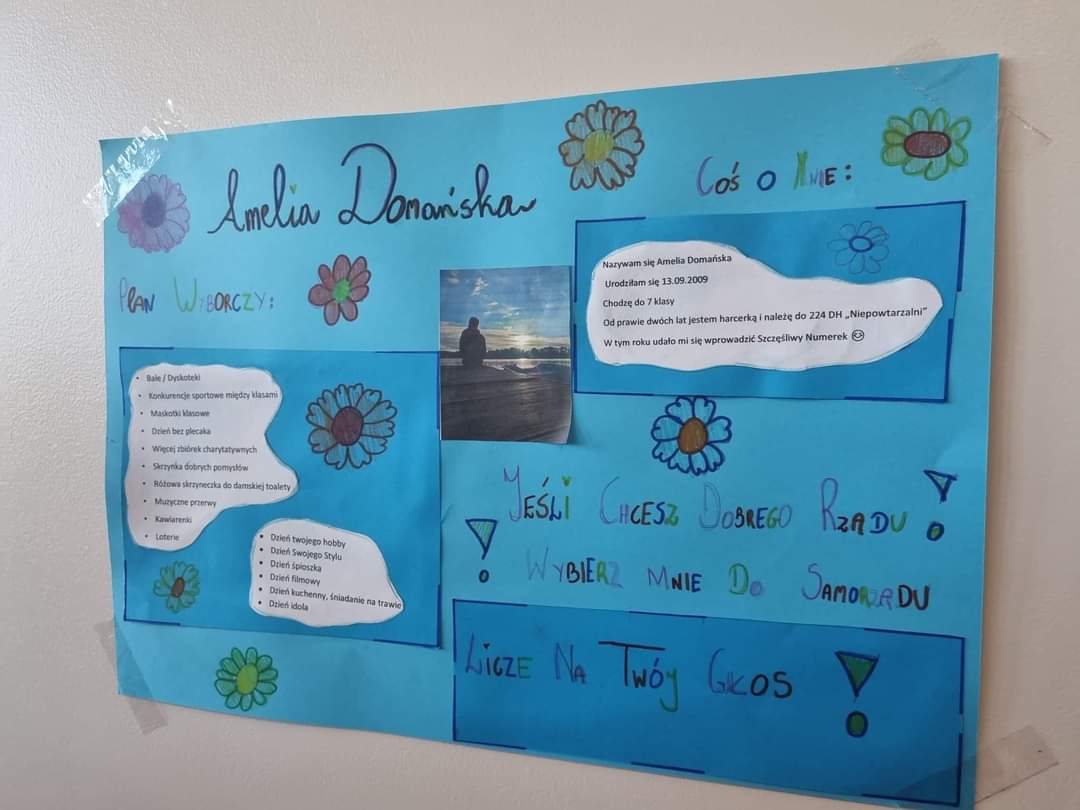 Amelia Domańska
Plan Wyborczy:
• Bale / Dyskoteki
• Konkurencje sportowe między klasami
• Maskotki klasowe
• Dzień bez plecaka
• Więcej zbiórek charytatywnych
• Skrzynka dobrych pomysłów
• Różowa skrzyneczka do damskiej toalety
• Muzyczne przerwy
• Kawiarenki
• Loterie
• Dzień twojego hobby
• Dzień Swojego Stylu
• Dzień śpioszka
• Dzień filmowy
• Dzień kuchenny, śniadanie na trawie
• Dzień idola
Coś o Mnie:
Nazywam się Amelia Domańska
Urodziłam się 13.09.2009
Chodzę do 7 klasy
Od prawie dwóch lat jestem harcerką i należę do 224 DH „Niepowtarzalni”
W tym roku udało mi się wprowadzić Szczęśliwy Numerek 😊
Jeśli Chcesz Dobrego Rządu !
! Wybierz mnie Do Samorządu
Licze Na Twój Głos !